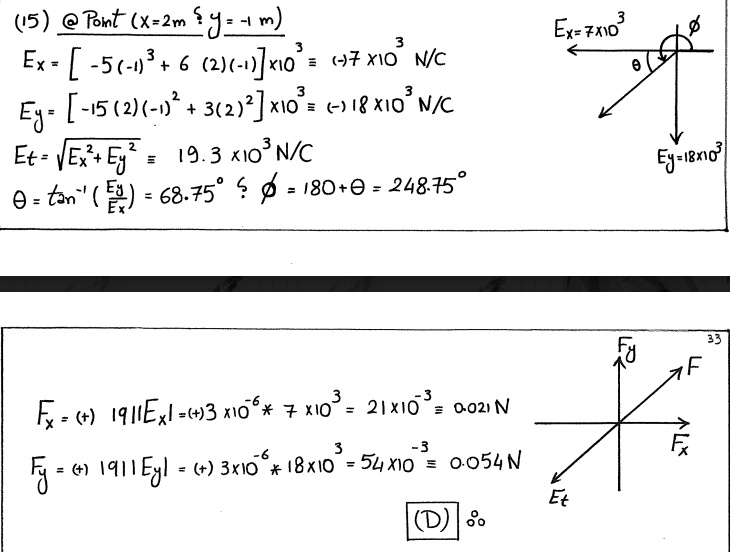 (15) @ Point (x=2m & y= -1 m)
Ex = [ -5(-1)³ + 6 (2)(-1)] x10³ ≡ (-)7 x10³ N/C
Ey = [-15(2)(-1)² + 3(2)²] x10³ ≡ (-) 18 x10³ N/C
Et = √Ex² + Ey² ≡ 19.3 x10³ N/C
θ = tan⁻¹ (Ey/Ex) = 68.75° & ø = 180+θ = 248.75°
Ex=7x10³
ø
θ
Ey=18x10³
33
Fx = (+) |q||Ex| =(+)3 x10⁻⁶ * 7 x10³ = 21x10⁻³ ≡ 0.021 N
Fy = (+) |q||Ey| = (+) 3x10⁻⁶ * 18x10³ = 54x10⁻³ ≡ 0.054 N
(D) ∴
Fy
F
Fx
Et